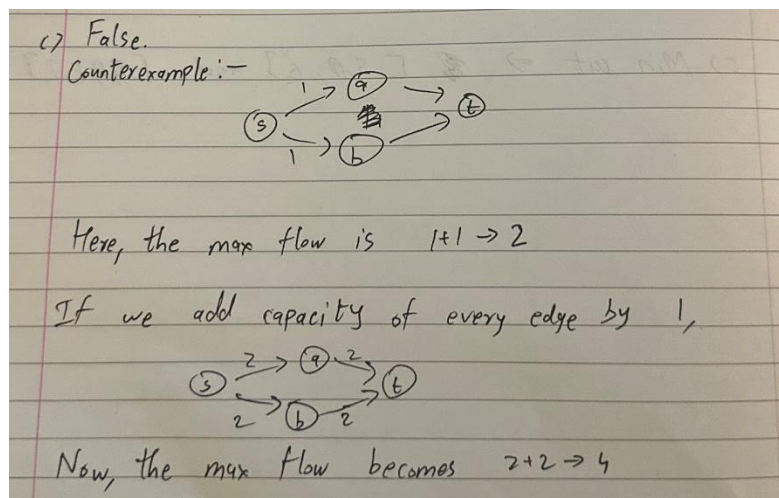 c) False.
Counterexample :-
1 a
s t
1 b
Here, the max flow is 1+1 → 2
If we add capacity of every edge by 1,
2 a 2
s t
2 b 2
Now, the max flow becomes 2+2 → 4